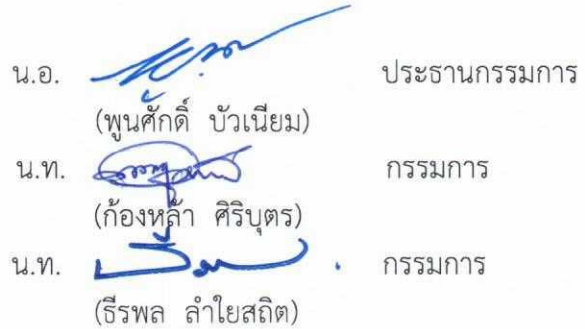 น.อ. ประธานกรรมการ
(พูนศักดิ์ บัวเนียม)
น.ท. กรรมการ
(ก้องหล้า ศิริบุตร)
น.ท. กรรมการ
(ธีรพล ลำใยสถิต)